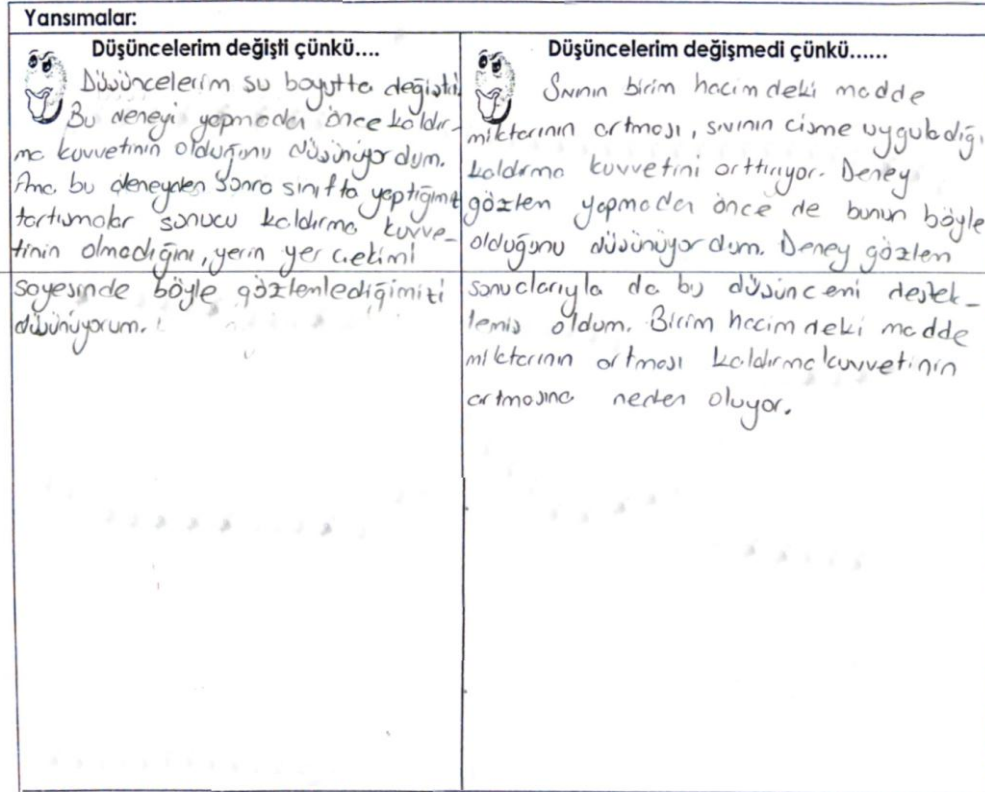 Yansımalar:
Düşüncelerim değişti çünkü....
Düşüncelerim şu boyutta değişti.
Bu deneyi yapmadan önce kaldır-
ma kuvvetinin olduğunu düşünüyordum.
Ama bu deneyden sonra sınıfta yaptığımız
tartışmalar sonucu kaldırma kuvve-
tinin olmadığını, yerin yer çekimi
sayesinde böyle gözlemlediğimizi
düşünüyorum.
Düşüncelerim değişmedi çünkü......
Sıvının birim hacimdeki madde
miktarının artması, sıvının cisme uyguladığı
kaldırma kuvvetini arttırıyor. Deney
gözlem yapmadan önce de bunun böyle
olduğunu düşünüyordum. Deney gözlem
sonuçlarıyla da bu düşüncemi destek-
lemiş oldum. Birim hacimdeki madde
miktarının artması kaldırma kuvvetinin
artmasına neden oluyor.